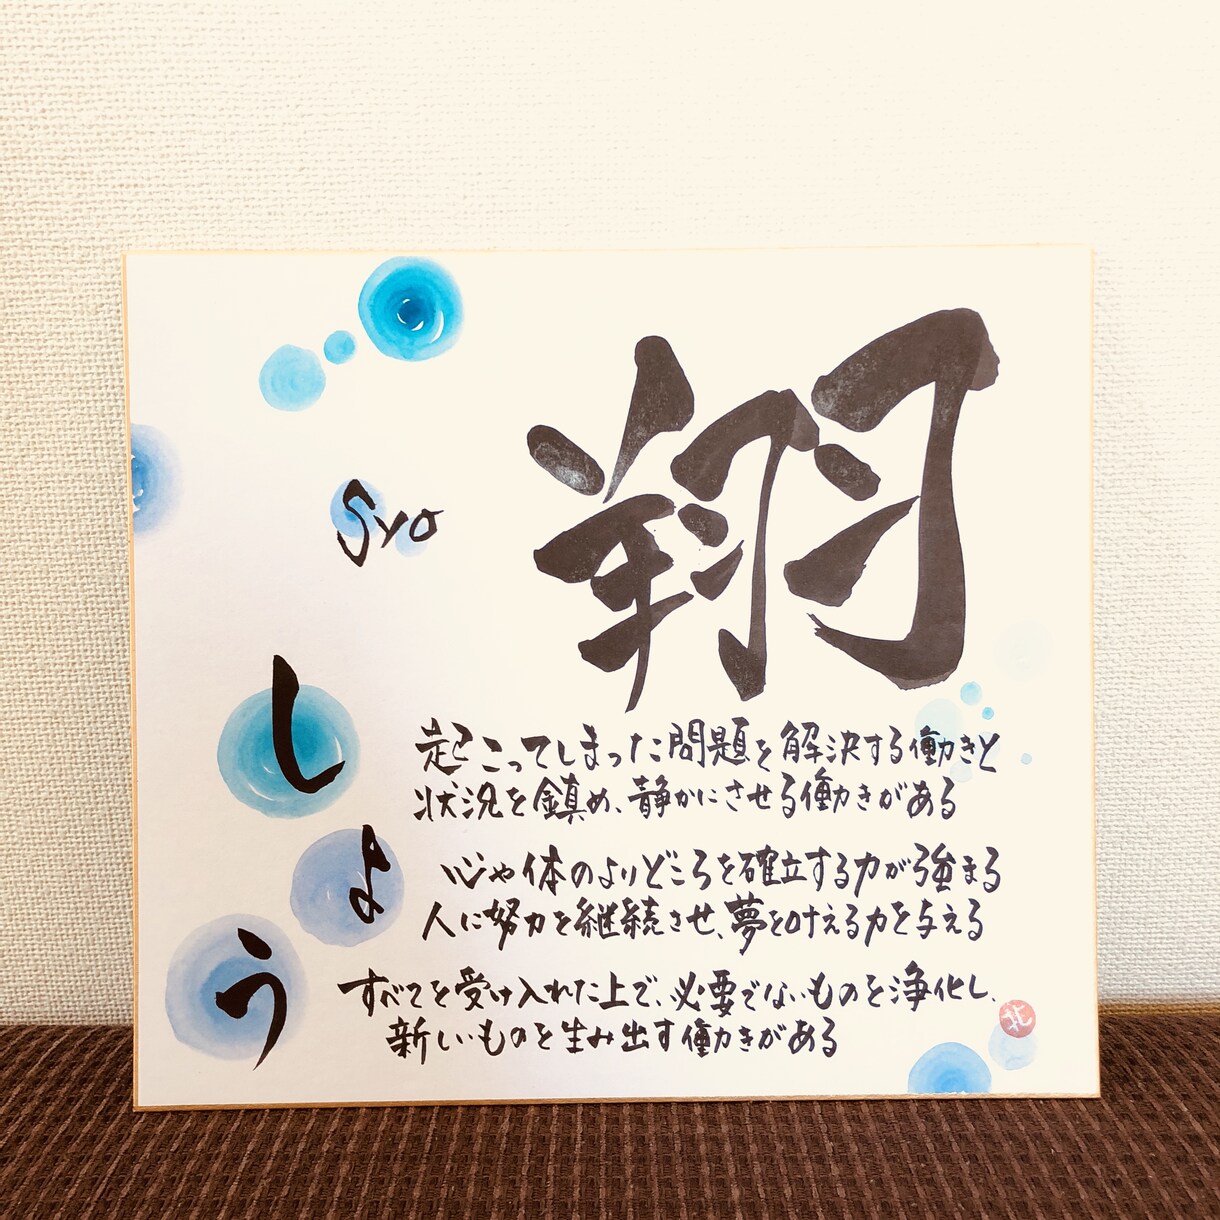 翔
syo
しょう
起こってしまった問題を解決する働きと
状況を鎮め、静かにさせる働きがある
心や体のよりどころを確立する力が強まる
人に努力を継続させ、夢を叶える力を与える
すべてを受け入れた上で、必要でないものを浄化し、
新しいものを生み出す働きがある